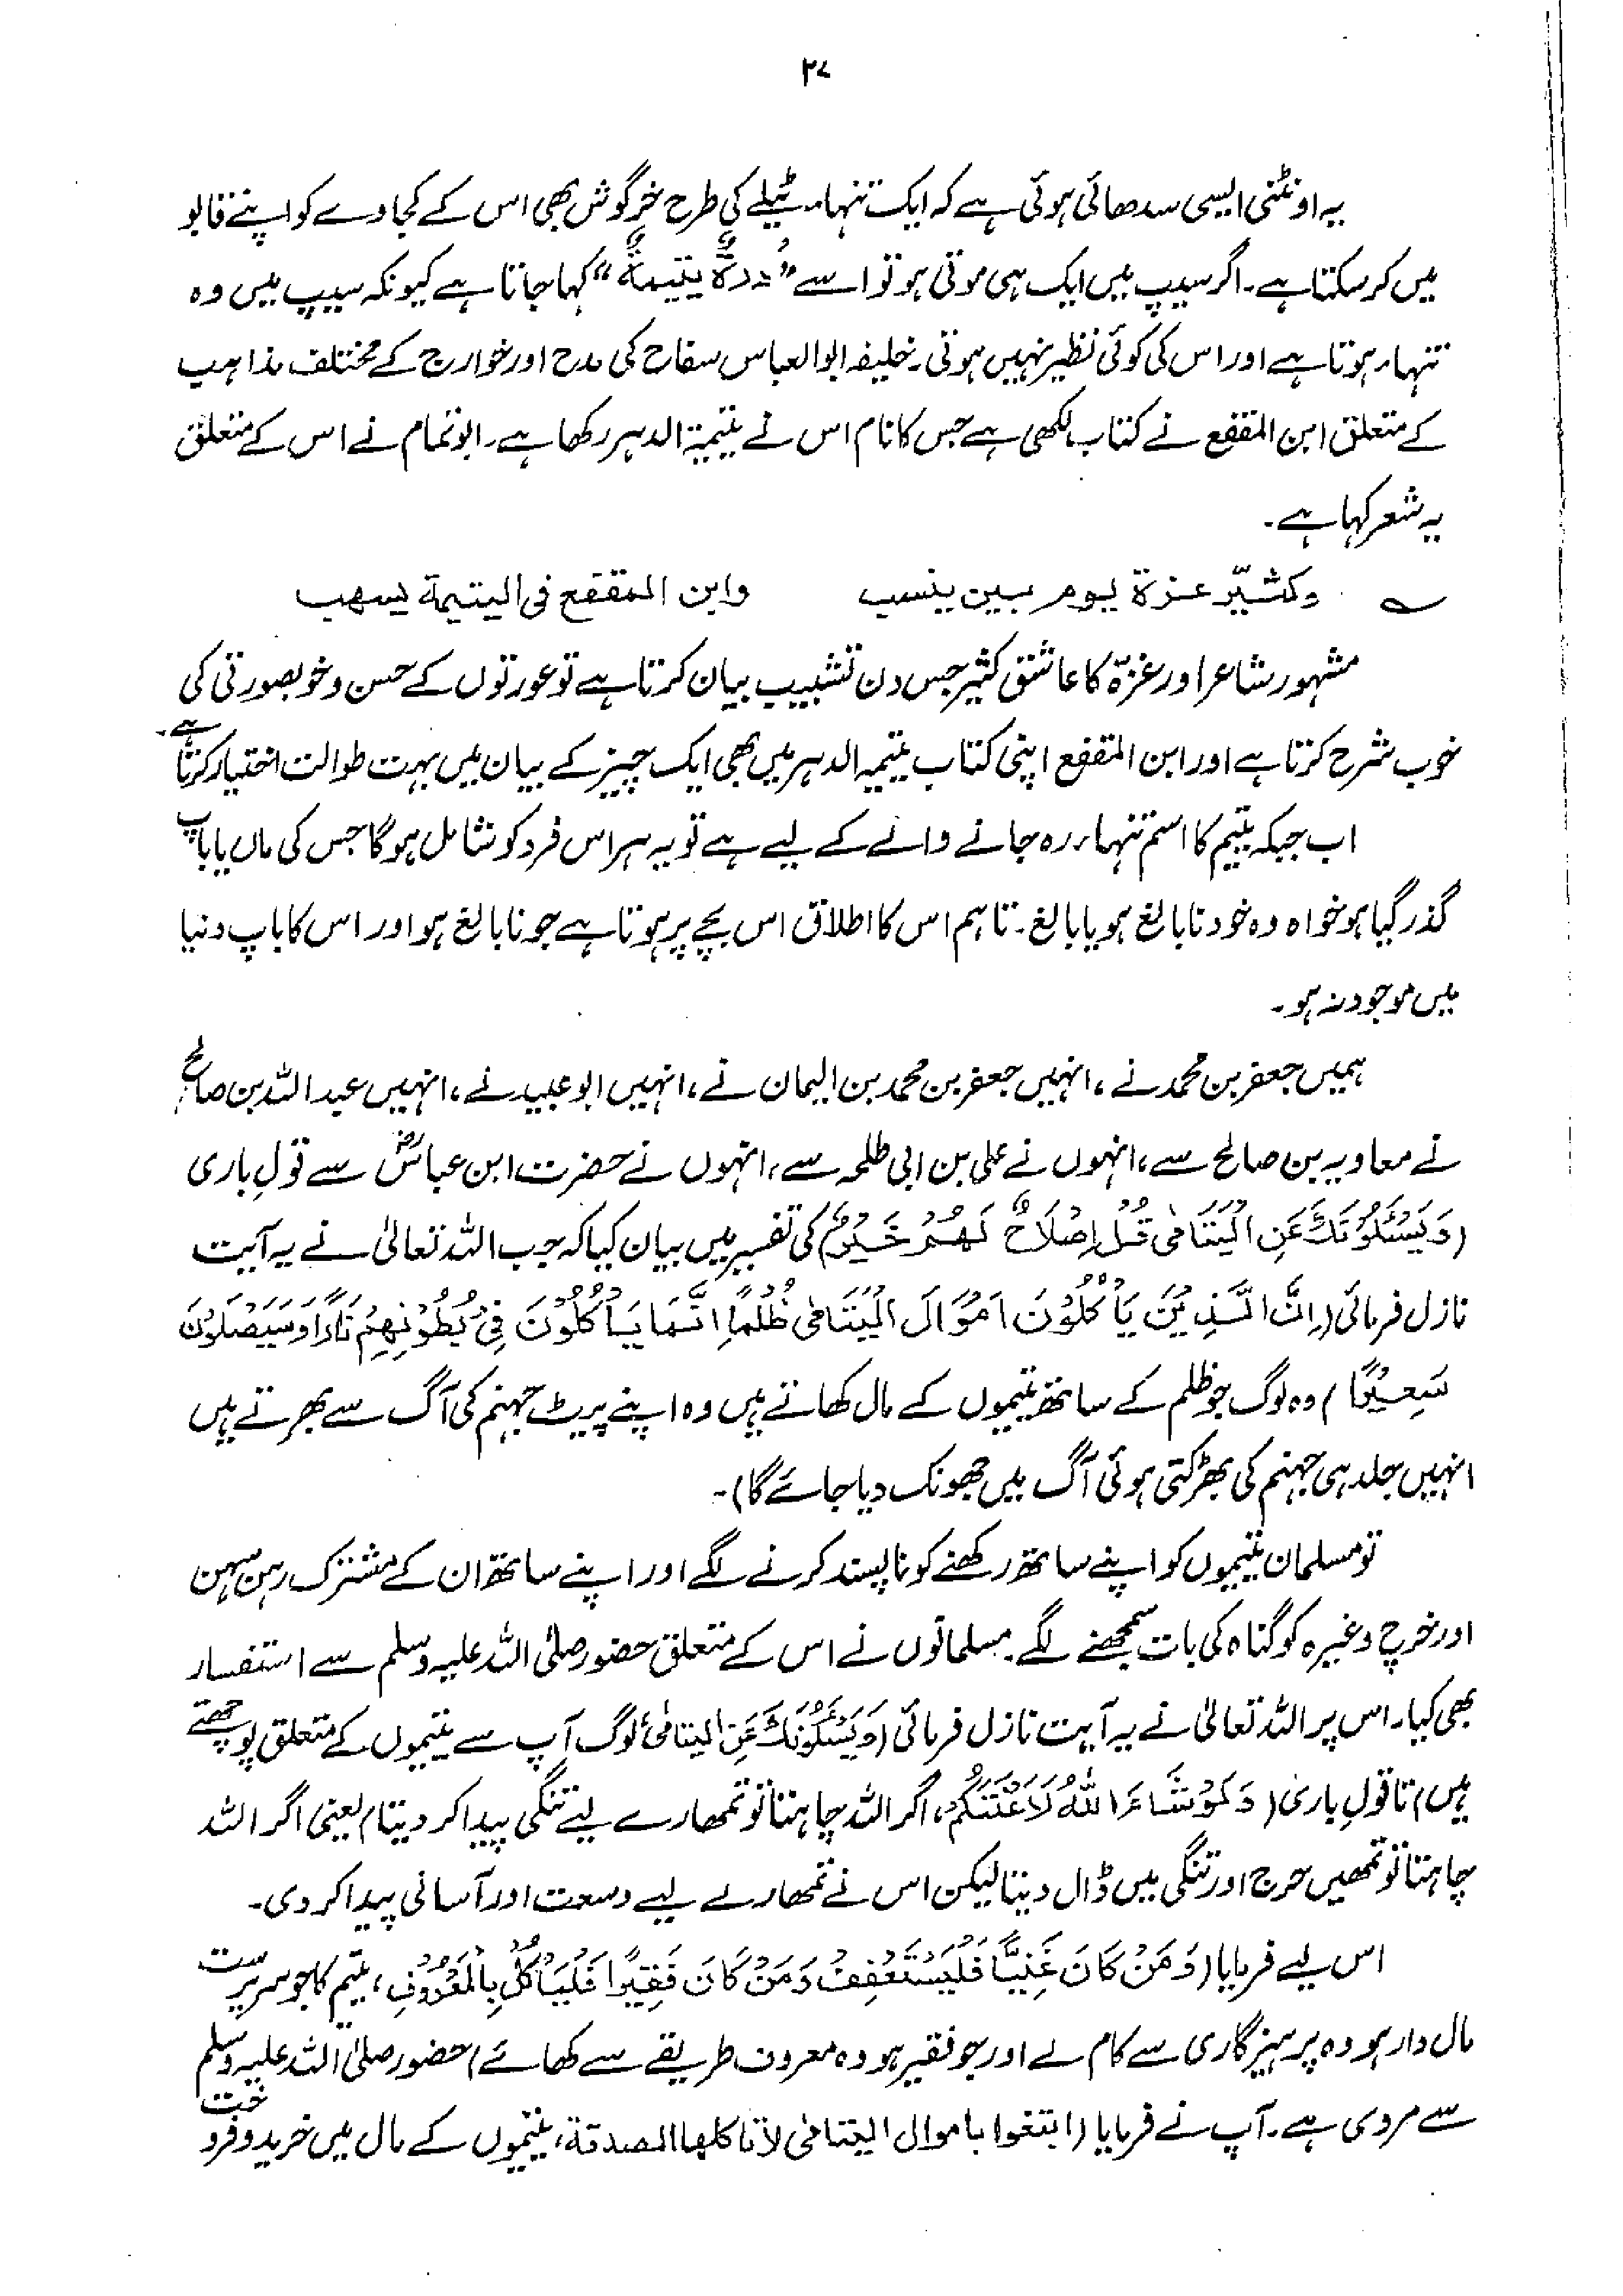 ۲۷
یہ اونٹنی ایسی سدھائی ہوئی ہے کہ ایک تنہاء ٹیلے کی طرح خرگوش بھی اس کے کجاوے کو اپنے قابو
میں کر سکتا ہے۔ اگر سیپ میں ایک ہی موتی ہو تو اسے "دُرَّۃٌ یتیمۃٌ" کہا جاتا ہے کیونکہ سیپ میں وہ
تنہاء ہوتا ہے اور اس کی کوئی نظیر نہیں ہوتی۔ خلیفہ ابوالعباس سفاح کی مدح اور خوارج کے مختلف مذاہب
کے متعلق ابن المقفع نے کتاب لکھی ہے جس کا نام اس نے یتیمۃ الدہر رکھا ہے۔ ابو تمام نے اس کے متعلق
یہ شعر کہا ہے۔
؎ وکثیّر عزۃ یوم بین ینسب وابن المقفع فی الیتیمۃ یسھب
مشہور شاعر اور عزّہ کا عاشق کثیر جس دن تشبیب بیان کرتا ہے تو عورتوں کے حسن و خوبصورتی کی
خوب شرح کرتا ہے اور ابن المقفع اپنی کتاب یتیمہ الدہر میں بھی ایک چیز کے بیان میں بہت طوالت اختیار کرتا ہے۔
اب جبکہ یتیم کا اسم تنہاء رہ جانے والے کے لیے ہے تو یہ ہر اس فرد کو شامل ہو گا جس کی ماں یا باپ
گذر گیا ہو خواہ وہ خود نابالغ ہو یا بالغ۔ تاہم اس کا اطلاق اس بچے پر ہوتا ہے جو نابالغ ہو اور اس کا باپ دنیا
میں موجود نہ ہو۔
ہمیں جعفر بن محمد نے، انہیں جعفر بن محمد بن الیمان نے، انہیں ابو عبید نے، انہیں عبداللہ بن صالح
نے معاویہ بن صالح سے، انہوں نے علی بن ابی طلحہ سے، انہوں نے حضرت ابن عباسؓ سے قولِ باری
(وَیَسْئَلُوْنَكَ عَنِ الْیَتَامٰی قُلْ اِصْلَاحٌ لَھُمْ خَیْرٌ) کی تفسیر میں بیان کیا کہ جب اللہ تعالیٰ نے یہ آیت
نازل فرمائی (اِنَّ الَّذِیْنَ یَاْکُلُوْنَ اَمْوَالَ الْیَتَامٰی ظُلْمًا اِنَّمَا یَاْکُلُوْنَ فِیْ بُطُوْنِھِمْ نَارًا وَسَیَصْلَوْنَ
سَعِیْرًا) وہ لوگ جو ظلم کے ساتھ یتیموں کے مال کھاتے ہیں وہ اپنے پیٹ جہنم کی آگ سے بھرتے ہیں
انہیں جلد ہی جہنم کی بھڑکتی ہوئی آگ میں جھونک دیا جائے گا)۔
تو مسلمان یتیموں کو اپنے ساتھ رکھنے کو ناپسند کرنے لگے اور اپنے ساتھ ان کے مشترک رہن سہن
اور خرچ وغیرہ کو گناہ کی بات سمجھنے لگے۔ مسلمانوں نے اس کے متعلق حضور صلی اللہ علیہ وسلم سے استفسار
بھی کیا۔ اس پر اللہ تعالیٰ نے یہ آیت نازل فرمائی (وَیَسْئَلُوْنَكَ عَنِ الیتامٰی لوگ آپ سے یتیموں کے متعلق پوچھتے
ہیں) تا قولِ باری (وَلَوْ شَاءَ اللّٰہُ لَاَعْنَتَکُمْ، اگر اللہ چاہتا تو تمھارے لیے تنگی پیدا کر دیتا) یعنی اگر اللہ
چاہتا تو تمھیں حرج اور تنگی میں ڈال دیتا لیکن اس نے تمھارے لیے وسعت اور آسانی پیدا کر دی۔
اس لیے فرمایا (وَمَنْ کَانَ غَنِیًّا فَلْیَسْتَعْفِفْ وَمَنْ کَانَ فَقِیْرًا فَلْیَاْکُلْ بِالْمَعْرُوْفِ، یتیم کا جو سرپرست
مال دار ہو وہ پرہیزگاری سے کام لے اور جو فقیر ہو وہ معروف طریقے سے کھائے) حضور صلی اللہ علیہ وسلم
سے مروی ہے۔ آپ نے فرمایا (ابتغوا باموال الیتامٰی لا تاکلھا الصدقۃ، یتیموں کے مال میں خرید و فروخت